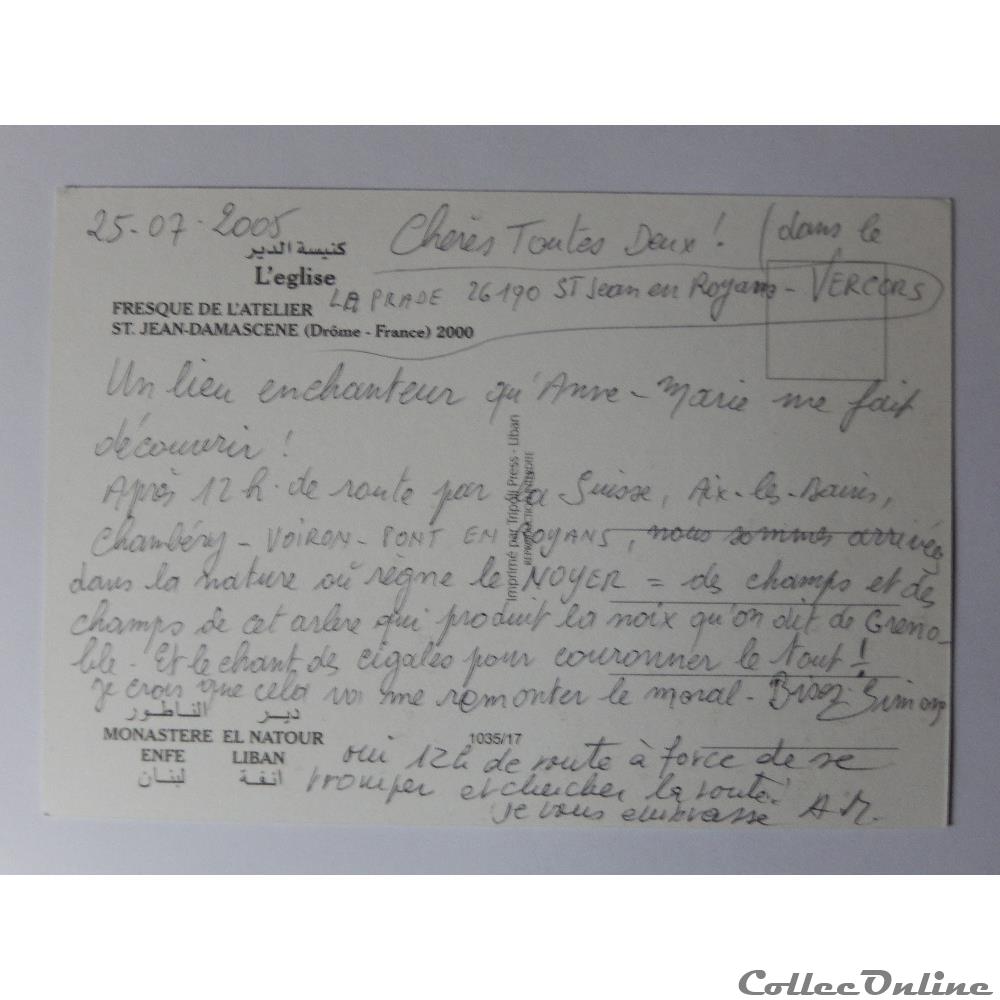 25-07-2005
Chères Toutes Deux ! (dans le
كنيسة الدير
L'eglise
LA PRADE 26190 ST Jean en Royans - VERCORS)
FRESQUE DE L'ATELIER
ST. JEAN-DAMASCENE (Drôme - France) 2000
Un lieu enchanteur qu'Anne-Marie me fait
découvrir !
Après 12h. de route par la Suisse, Aix-les-Bains,
Chambéry - VOIRON - PONT EN ROYANS, nous sommes arrivées
dans la nature où règne le NOYER = des champs et des
champs de cet arbre qui produit la noix qu'on dit de Greno-
ble. Et le chant des cigales pour couronner le tout !
Je crois que cela va me remonter le moral - Bises Simone
Imprimé par Tripoli Press - Liban
REPRODUCTION INTERDITE
دير الناطور
MONASTERE EL NATOUR
ENFE LIBAN
انفة لبنان
1035/17
oui 12h de route à force de se
tromper et chercher la route.
je vous embrasse A M.
CollecOnline